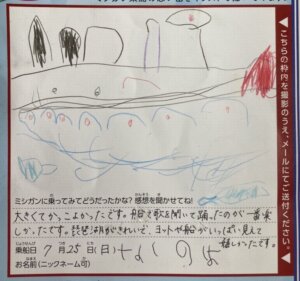 ミシガンに乗ってみてどうだったかな？感想を聞かせてね！
大きくてかっこよかったです。船で歌を聞いて踊ったのが一番楽
しかったです。琵琶湖がきれいで、ヨットや船がいっぱい見えて
嬉しかったです。
乗船日 7月25日(日)
お名前(ニックネーム可)
▲こちらの枠内を撮影のうえ、メールにてご送付ください。▲